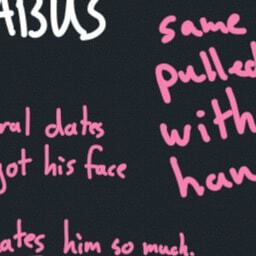 ABUS
ral dates
got his face
ates him so much.
same
pulled
with
han